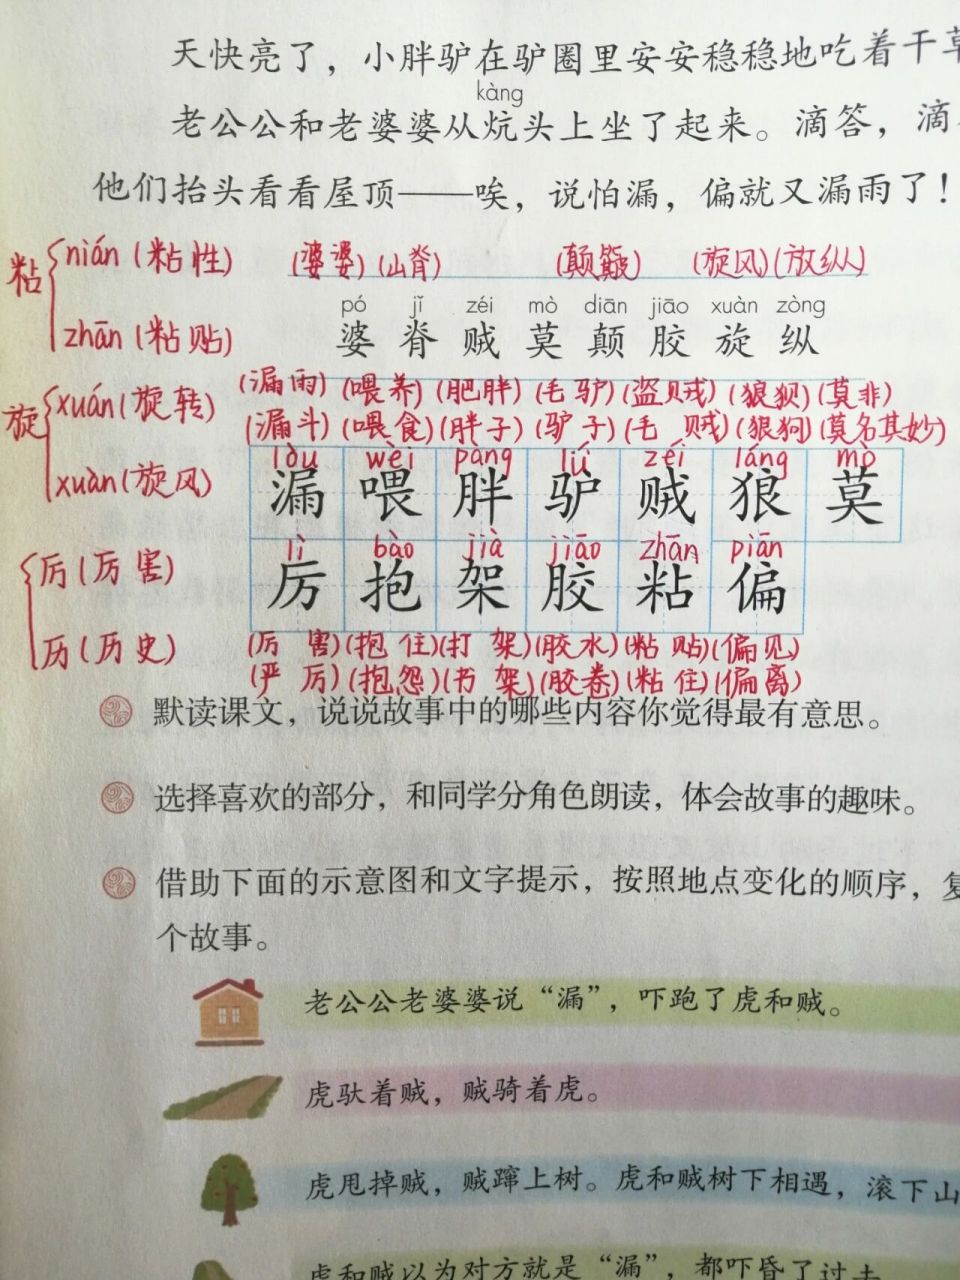 天快亮了，小胖驴在驴圈里安安稳稳地吃着干草
kàng
老公公和老婆婆从炕头上坐了起来。滴答，滴
他们抬头看看屋顶——唉，说怕漏，偏就又漏雨了！
粘 nián (粘性)
zhān (粘贴)
(婆婆) (山脊) (颠簸) (旋风) (放纵)
pó jǐ zéi mò diān jiāo xuàn zòng
婆 脊 贼 莫 颠 胶 旋 纵
旋 xuán (旋转)
xuàn (旋风)
(漏雨) (喂养) (肥胖) (毛驴) (盗贼) (狼狈) (莫非)
(漏斗) (喂食) (胖子) (驴子) (毛贼) (狼狗) (莫名其妙)
lòu wèi pàng lǘ zéi láng mò
漏 喂 胖 驴 贼 狼 莫
lì bào jià jiāo zhān piān
厉 抱 架 胶 粘 偏
厉 (厉害)
历 (历史)
(厉害) (抱住) (打架) (胶水) (粘贴) (偏见)
(严厉) (抱怨) (书架) (胶卷) (粘住) (偏离)
默读课文，说说故事中的哪些内容你觉得最有意思。
选择喜欢的部分，和同学分角色朗读，体会故事的趣味。
借助下面的示意图和文字提示，按照地点变化的顺序，复
个故事。
老公公老婆婆说“漏”，吓跑了虎和贼。
虎驮着贼，贼骑着虎。
虎甩掉贼，贼蹿上树。虎和贼树下相遇，滚下山
虎和贼以为对方就是“漏”，都吓昏了过去